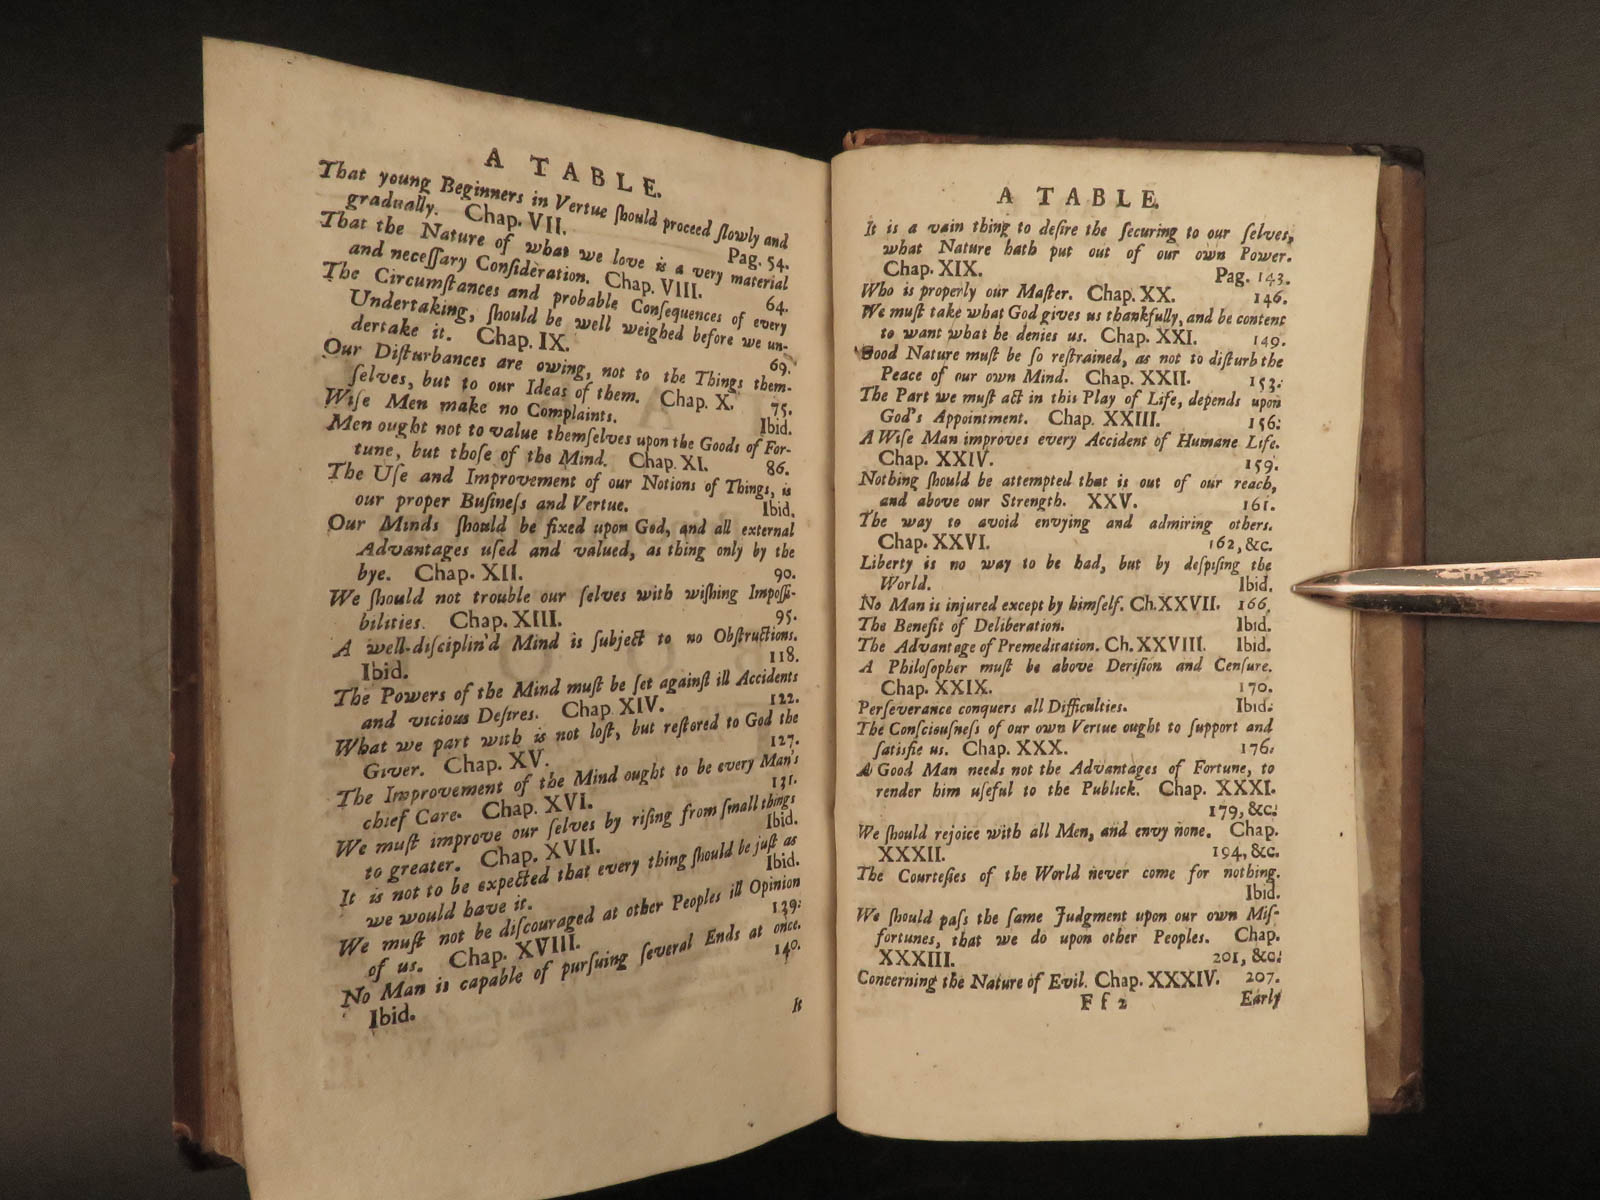 A TABLE.
That young Beginners in Vertue ſhould proceed ſlowly and
gradually. Chap. VII. Pag. 54.
That the Nature of what we love is a very material
and neceſſary Conſideration. Chap. VIII. 64.
The Circumſtances and probable Conſequences of every
Undertaking, ſhould be well weighed before we un-
dertake it. Chap. IX. 69.
Our Diſturbances are owing, not to the Things them-
ſelves, but to our Ideas of them. Chap. X. 75.
Wiſe Men make no Complaints. Ibid.
Men ought not to value themſelves upon the Goods of For-
tune, but thoſe of the Mind. Chap. XI. 86.
The Uſe and Improvement of our Notions of Things, is
our proper Buſineſs and Vertue. Ibid.
Our Minds ſhould be fixed upon God, and all external
Advantages uſed and valued, as thing only by the
bye. Chap. XII. 90.
We ſhould not trouble our ſelves with wiſhing Impoſſi-
bilities. Chap. XIII. 95.
A well-diſciplin'd Mind is ſubject to no Obſtructions.
Ibid. 118.
The Powers of the Mind muſt be ſet againſt ill Accidents
and vicious Deſires. Chap. XIV. 122.
What we part with is not loſt, but reſtored to God the
Giver. Chap. XV. 127.
The Improvement of the Mind ought to be every Man's
chief Care. Chap. XVI. 131.
We muſt improve our ſelves by riſing from ſmall things
to greater. Chap. XVII. Ibid.
It is not to be expected that every thing ſhould be juſt as
we would have it. Ibid.
We muſt not be diſcouraged at other Peoples ill Opinion
of us. Chap. XVIII. 139.
No Man is capable of purſuing ſeveral Ends at once.
Ibid. 140.
It
A TABLE.
It is a vain thing to deſire the ſecuring to our ſelves,
what Nature hath put out of our own Power.
Chap. XIX. Pag. 143.
Who is properly our Maſter. Chap. XX. 146.
We muſt take what God gives us thankfully, and be content
to want what he denies us. Chap. XXI. 149.
Good Nature muſt be ſo reſtrained, as not to diſturb the
Peace of our own Mind. Chap. XXII. 153.
The Part we muſt act in this Play of Life, depends upon
God's Appointment. Chap. XXIII. 156.
A Wiſe Man improves every Accident of Humane Life.
Chap. XXIV. 159.
Nothing ſhould be attempted that is out of our reach,
and above our Strength. XXV. 161.
The way to avoid envying and admiring others.
Chap. XXVI. 162, &c.
Liberty is no way to be had, but by deſpiſing the
World. Ibid.
No Man is injured except by himſelf. Ch. XXVII. 166.
The Benefit of Deliberation. Ibid.
The Advantage of Premeditation. Ch. XXVIII. Ibid.
A Philoſopher muſt be above Deriſion and Cenſure.
Chap. XXIX. 170.
Perſeverance conquers all Difficulties. Ibid.
The Conſciouſneſs of our own Vertue ought to ſupport and
ſatisfie us. Chap. XXX. 176.
A Good Man needs not the Advantages of Fortune, to
render him uſeful to the Publick. Chap. XXXI.
179, &c.
We ſhould rejoice with all Men, and envy none. Chap.
XXXII. 194, &c.
The Courteſies of the World never come for nothing.
Ibid.
We ſhould paſs the ſame Judgment upon our own Miſ-
fortunes, that we do upon other Peoples. Chap.
XXXIII. 201, &c.
Concerning the Nature of Evil. Chap. XXXIV. 207.
F f 2 Early